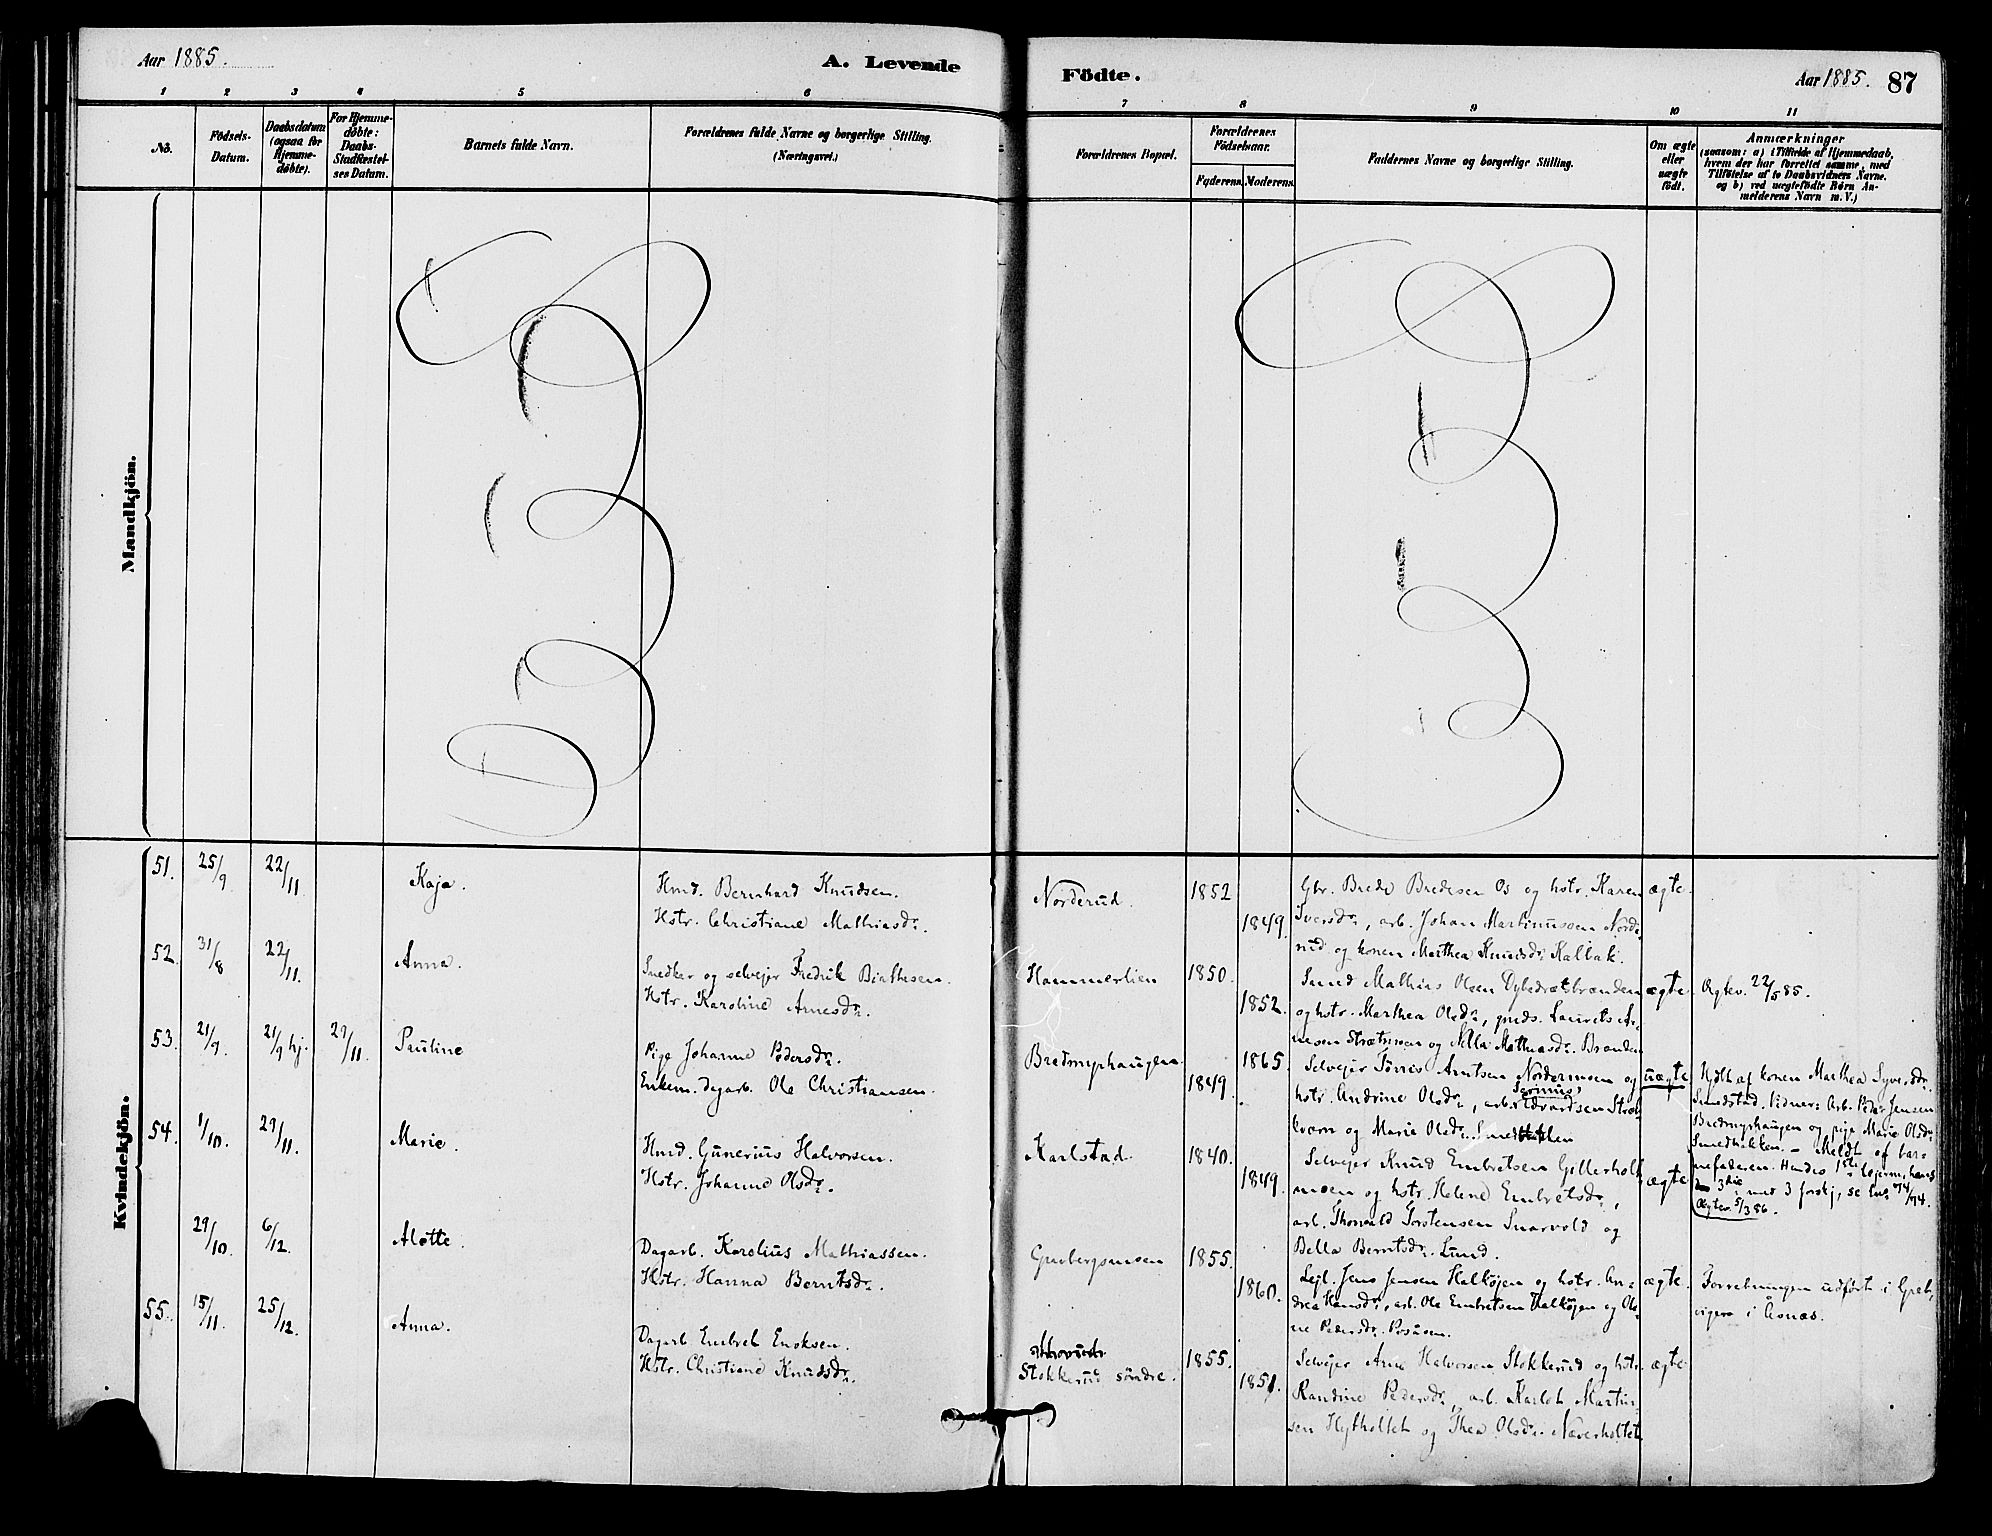 Aar 1885.
A. Levende
Födte.
Aar 1885. 87
1 2 3 4 5 6 7 8 9 10 11
No.
Födsels-
Datum.
Daabsdatum
(ogsaa for
Hjemme-
döbte).
For Hjemme-
döbte:
Daabs-
Stadfæstel-
ses Datum.
Barnets fulde Navn.
Forældrenes fulde Navne og borgerlige Stilling.
(Næringsvei.)
Forældrenes Bopæl.
Forældrenes
Födselsaar.
Faderens. Moderens.
Faddernes Navne og borgerlige Stilling.
Om ægte
eller
uægte
födt.
Anmærkninger
(saasom: a) i Tilfælde af Hjemmedaab,
hvem der har forrettet samme, med
Tilföielse af to Daabsvidners Navne.
og b) ved uægtefödte Börn An-
melderens Navn m. V.)
Mandkjön.
Kvindekjön.
51. 25/9 22/11 Kaja.
Hmd. Bernhard Knudsen.
Hstr. Christiane Mathiasdr.
Norderud. 1852 1849.
Gbr. Brede Bredesen Os og hstr. Karen
Iversdr, arb. Johan Martinussen Norde-
rud og konen Marthea Knudsdr Kallak.
ægte.
52. 31/8 22/11. Anna.
Snedker og selvejer Fredrik Berthesen.
Hstr. Karoline Arnesdr.
Hammerlien 1850. 1852.
Mathias Olsen
og hstr. Marthea Olsdr, Laurits Ar-
nesen og Mathiasdr. Brænden
ægte
Ægtev. 22/5 85.
53. 21/9. 21/9 hj. 29/11. Pauline
Pige Johanne Pedersdr.
Enkem. dagarb. Ole Christiansen.
Bredmyrhaugen. 1865. 1849.
Selvejer Tönnes Arntsen Nordermoen og
hstr. Andrine Olsdr, arb. Edvardsen
og Marie Olsdr.
uægte
Hjdbt. af konen Marthea Syversdr.
Smedstad. Vidner: Arb. Peder Jensen
Bredmyrhaugen og pige Marie Olsdr
Smedbakken. – Meldt af bar-
nefaderen. Hendes 1ste lejerm., hans
3die med 3 forskj., se
Ægtev. 5/3 86.
54. 1/10. 29/11. Marie.
Hmd. Gunerius Halvorsen.
Hstr. Johanne Olsdr.
Karlstad. 1840. 1849.
Selvejer Knud Embretsen Gillerholt-
moen og hstr. Helene Embretsdr,
arb. Thorvald Torstensen Snarvold og
Bella Berntsdr. Lund.
ægte
29/10. 6/12. Alette.
Dagarb. Karolius Mathiassen.
Hstr. Hanna Berntsdr.
1855. 1860.
Lejl. Jens Jensen Kalköjen og hstr. An-
drea Hansdr, arb. Ole Embretsen Kalköjen og Ole-
ne Pedersdr.
ægte.
Forretningen udført i
i Åsnæs.
55. 15/11. 25/12. Anna.
Dagarb. Embret Enoksen.
Hstr. Christiane Knudsdr.
Stokkerud söndre. 1855. 1851.
Selvejer Arne Halvorsen Stokkerud og hstr.
Randine Pedersdr, arb. Karelot Martin-
sen Hytholtet og Thea Olsdr. Næverholtet
ægte.